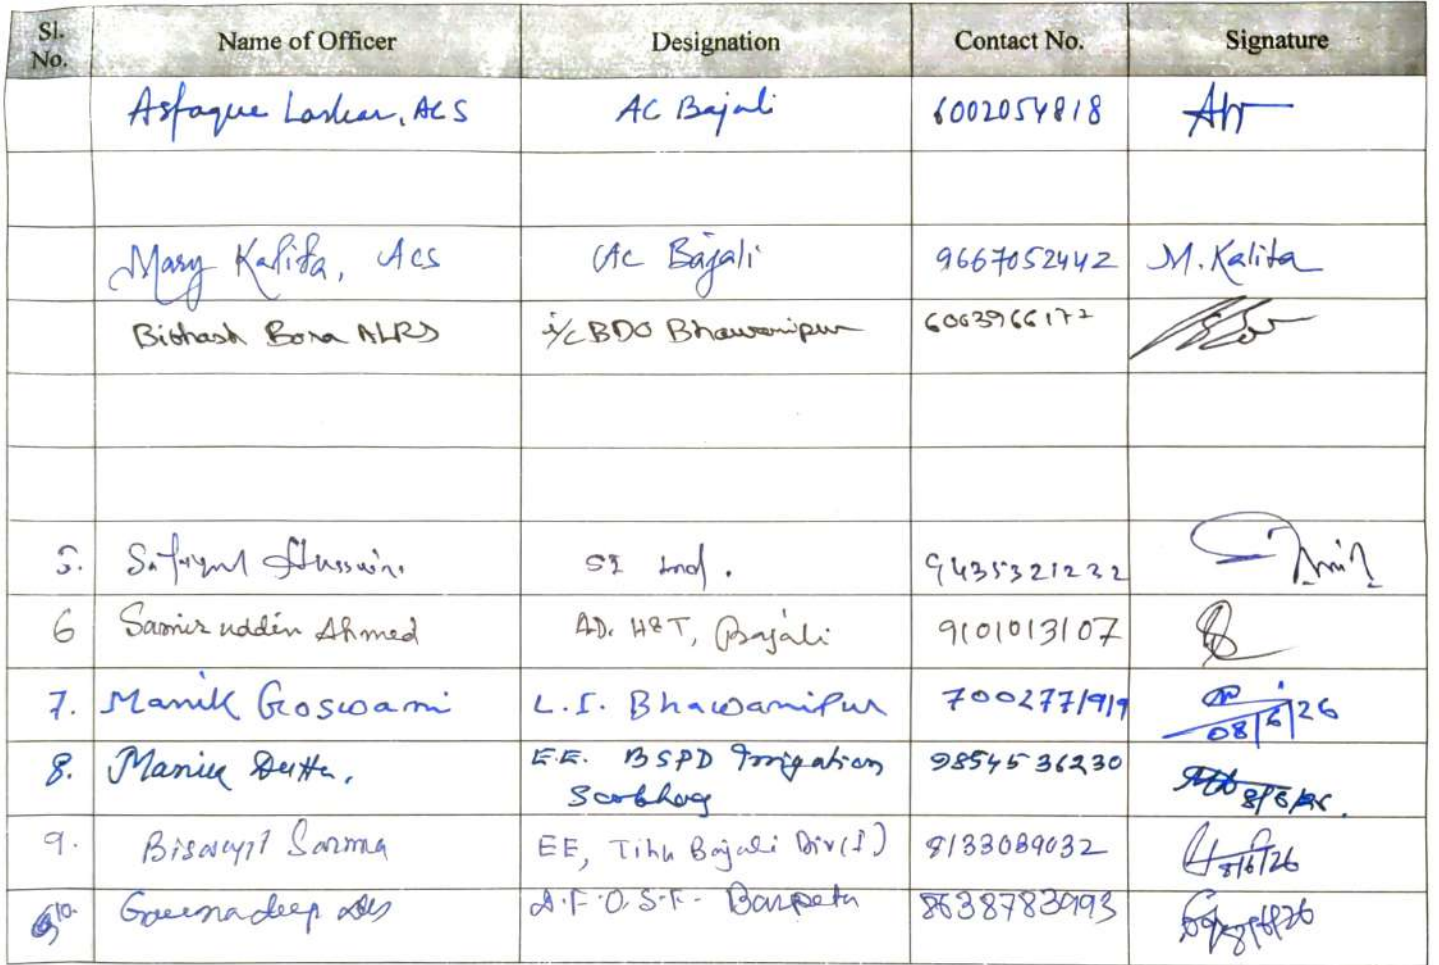 Sl. No. Name of Officer Designation Contact No. Signature
Asfaque Laskar, ACS AC Bajali 6002054818
Mary Kalita, ACS AC Bajali 9667052442 M. Kalita
Bibhash Bora ALRS i/c BDO Bhawanipur 6003966172
5. Hussain. SI Ind. 9435321232
6 Samir uddin Ahmed AD. H&T, Bajali 9101013107
7. Manik Goswami L.I. Bhawanipur 7002771919 08/6/26
8. Manik Dutta. E.E. BSPD Irrigation 9854536230
Sarbhog 8/6/26.
9. Biswajit Sarma EE, Tihu Bajali Div(I) 8133089032 8/6/26
10. das A.F.O.S.F. Barpeta 8638783993 8/6/26